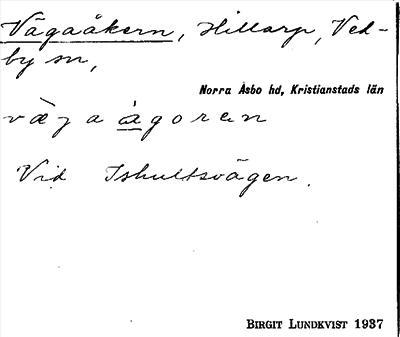 Vägaåkern, Hillarp, Ved-
by sn,
Norra Åsbo hd, Kristianstads län
væ̀ga ågorœn
Vid Ishultsvägen.
BIRGIT LUNDKVIST 1937